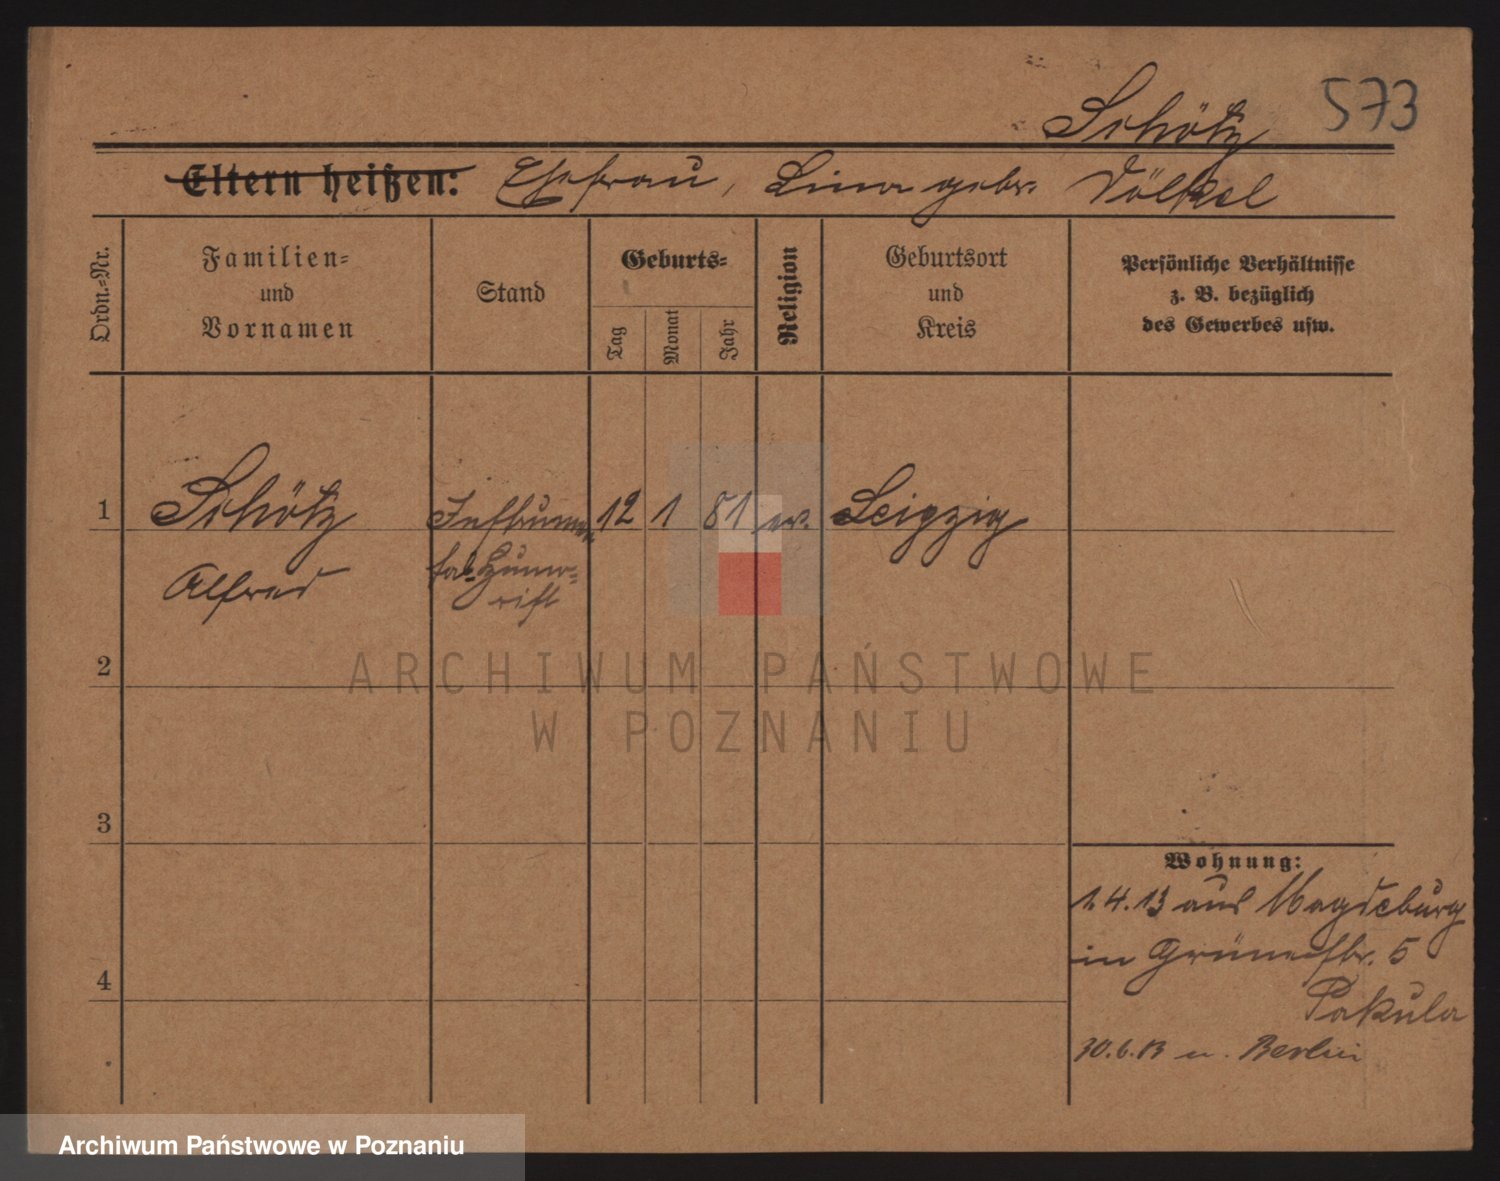 Schötz 573
Eltern heißen: Ehefrau, Lina gebr. Völkel
Ordn.-Nr.
Familien-
und
Vornamen
Stand
Geburts-
Tag
Monat
Jahr
Religion
Geburtsort
und
Kreis
Persönliche Verhältnisse
z. B. bezüglich
des Gewerbes usw.
1 Schötz 12 1 81 ev. Leipzig
Alfred
2
3
4
Wohnung:
1.4.13 aus Magdeburg
in Grünestr. 5
Pakula
30.6.13 n. Berlin
ARCHIWUM PAŃSTWOWE
W POZNANIU
Archiwum Państwowe w Poznaniu